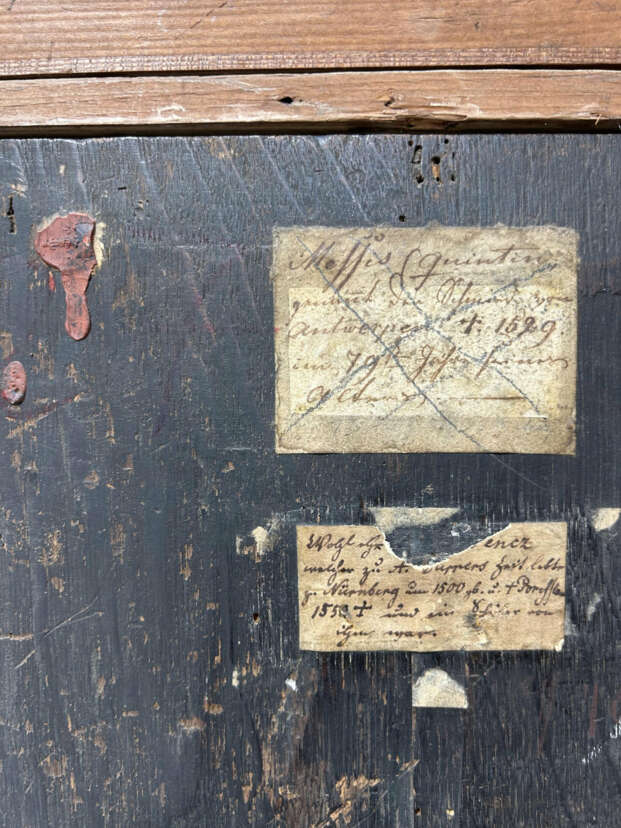 Messis Quintin
genannt der Schmid von
Antwerpen. †. 1529.
im 79ten Jahre seines
Alters
Wohl encz
welcher zu A. Dürrers Zeit lebte
z. Nürnberg um 1500 gb. u. †
1550 † und ein Schüler von
ihm war.